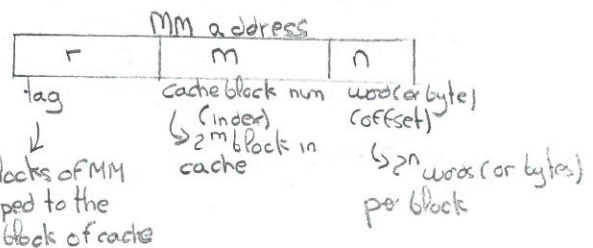 MM address
r m n
tag cache block num word(or byte)
(index) (offset)
↳ 2^m block in
cache
↳ 2^n words(or bytes)
per block
locks of MM
ped to the
block of cache